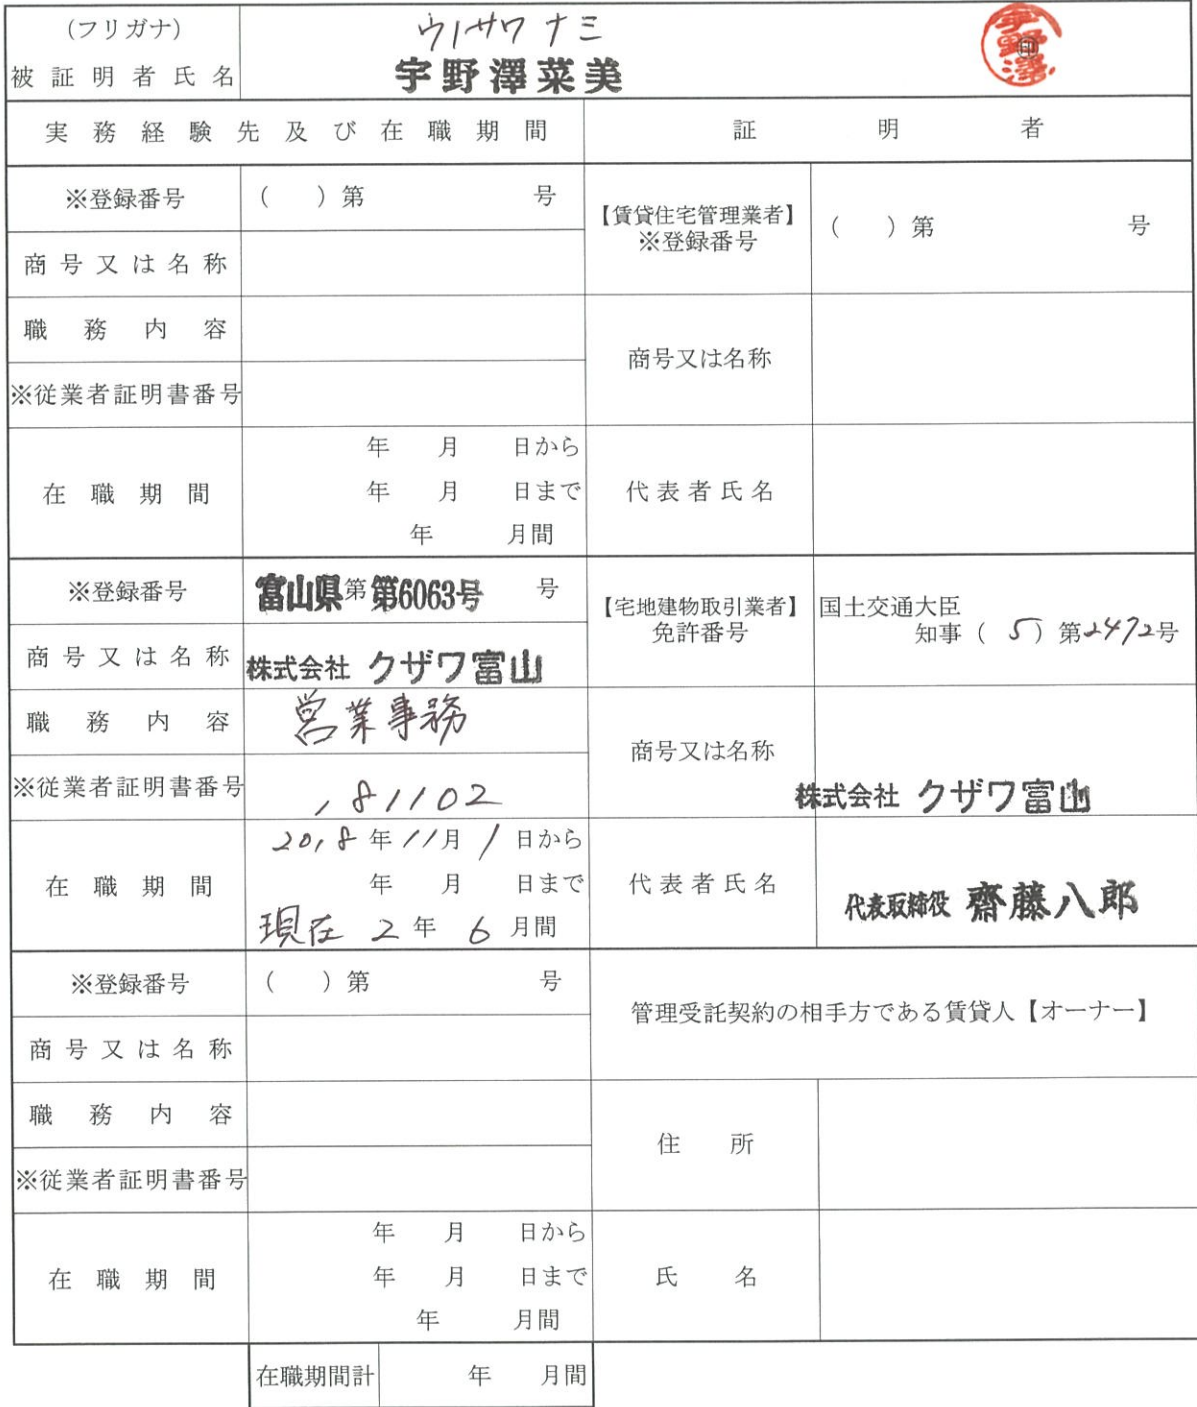 (フリガナ) ウノサワ ナミ
被証明者氏名 宇野澤菜美 宇野澤 印
実務経験先及び在職期間 証明者
※登録番号 ( )第 号
【賃貸住宅管理業者】
※登録番号 ( )第 号
商号又は名称
職務内容
商号又は名称
※従業者証明書番号
在職期間 年 月 日から
年 月 日まで
年 月間
代表者氏名
※登録番号 富山県第 第6063号 号
【宅地建物取引業者】 国土交通大臣
免許番号 知事( 5)第2472号
商号又は名称 株式会社 クザワ富山
職務内容 営業事務
商号又は名称 株式会社 クザワ富山
※従業者証明書番号 181102
在職期間 2018年11月1日から
年 月 日まで
現在 2年 6月間
代表者氏名 代表取締役 齋藤八郎
※登録番号 ( )第 号
管理受託契約の相手方である賃貸人【オーナー】
商号又は名称
職務内容
住所
※従業者証明書番号
在職期間 年 月 日から
年 月 日まで
年 月間
氏名
在職期間計 年 月間